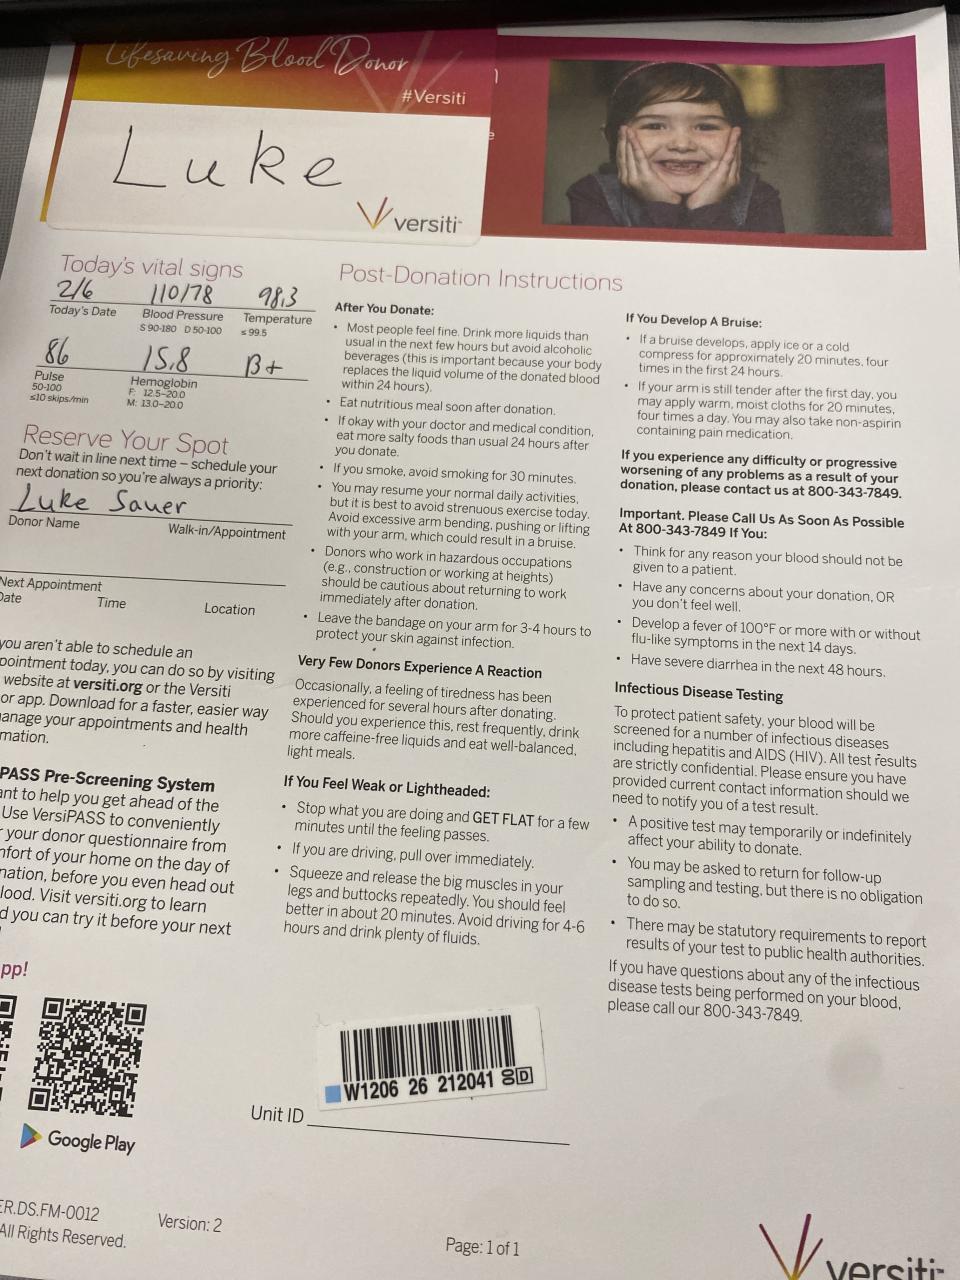 Lifesaving Blood Donor
#Versiti
Luke
versiti
Today's vital signs
2/6 110/78 98.3
Today's Date Blood Pressure Temperature
S 90-180 D 50-100 ≤ 99.5
86 15.8 B+
Pulse Hemoglobin
50-100 F: 12.5-20.0
≤10 skips/min M: 13.0-20.0
Reserve Your Spot
Don't wait in line next time – schedule your
next donation so you're always a priority:
Luke Sauer
Donor Name Walk-in/Appointment
Next Appointment
Date Time Location
you aren't able to schedule an
pointment today, you can do so by visiting
website at versiti.org or the Versiti
or app. Download for a faster, easier way
anage your appointments and health
mation.
PASS Pre-Screening System
ant to help you get ahead of the
Use VersiPASS to conveniently
your donor questionnaire from
mfort of your home on the day of
nation, before you even head out
lood. Visit versiti.org to learn
d you can try it before your next
pp!
Google Play
Post-Donation Instructions
After You Donate:
• Most people feel fine. Drink more liquids than
usual in the next few hours but avoid alcoholic
beverages (this is important because your body
replaces the liquid volume of the donated blood
within 24 hours).
• Eat nutritious meal soon after donation.
• If okay with your doctor and medical condition,
eat more salty foods than usual 24 hours after
you donate.
• If you smoke, avoid smoking for 30 minutes.
• You may resume your normal daily activities,
but it is best to avoid strenuous exercise today.
Avoid excessive arm bending, pushing or lifting
with your arm, which could result in a bruise.
• Donors who work in hazardous occupations
(e.g., construction or working at heights)
should be cautious about returning to work
immediately after donation.
• Leave the bandage on your arm for 3-4 hours to
protect your skin against infection.
Very Few Donors Experience A Reaction
Occasionally, a feeling of tiredness has been
experienced for several hours after donating.
Should you experience this, rest frequently, drink
more caffeine-free liquids and eat well-balanced,
light meals.
If You Feel Weak or Lightheaded:
• Stop what you are doing and GET FLAT for a few
minutes until the feeling passes.
• If you are driving, pull over immediately.
• Squeeze and release the big muscles in your
legs and buttocks repeatedly. You should feel
better in about 20 minutes. Avoid driving for 4-6
hours and drink plenty of fluids.
If You Develop A Bruise:
• If a bruise develops, apply ice or a cold
compress for approximately 20 minutes, four
times in the first 24 hours.
• If your arm is still tender after the first day, you
may apply warm, moist cloths for 20 minutes,
four times a day. You may also take non-aspirin
containing pain medication.
If you experience any difficulty or progressive
worsening of any problems as a result of your
donation, please contact us at 800-343-7849.
Important. Please Call Us As Soon As Possible
At 800-343-7849 If You:
• Think for any reason your blood should not be
given to a patient.
• Have any concerns about your donation, OR
you don't feel well.
• Develop a fever of 100°F or more with or without
flu-like symptoms in the next 14 days.
• Have severe diarrhea in the next 48 hours.
Infectious Disease Testing
To protect patient safety, your blood will be
screened for a number of infectious diseases
including hepatitis and AIDS (HIV). All test results
are strictly confidential. Please ensure you have
provided current contact information should we
need to notify you of a test result.
• A positive test may temporarily or indefinitely
affect your ability to donate.
• You may be asked to return for follow-up
sampling and testing, but there is no obligation
to do so.
• There may be statutory requirements to report
results of your test to public health authorities.
If you have questions about any of the infectious
disease tests being performed on your blood,
please call our 800-343-7849.
W1206 26 212041 00 D
Unit ID
ER.DS.FM-0012 Version: 2
All Rights Reserved.
Page: 1 of 1
versiti™